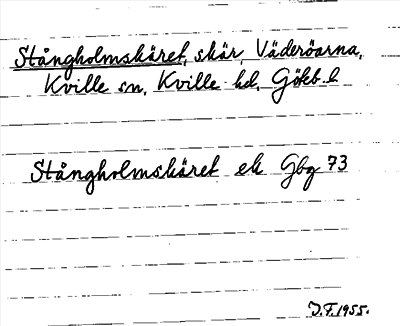 Stångholmskäret, skär, Väderöarna,
Kville sn, Kville hd, Götb. l
Stångholmskäret ek Gbg 73
J.F. 1955.